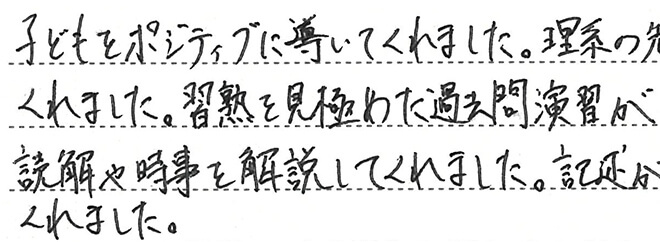 子どもをポジティブに導いてくれました。理系の先
くれました。習熟を見極めた過去問演習が
読解や時事を解説してくれました。記述が
くれました。